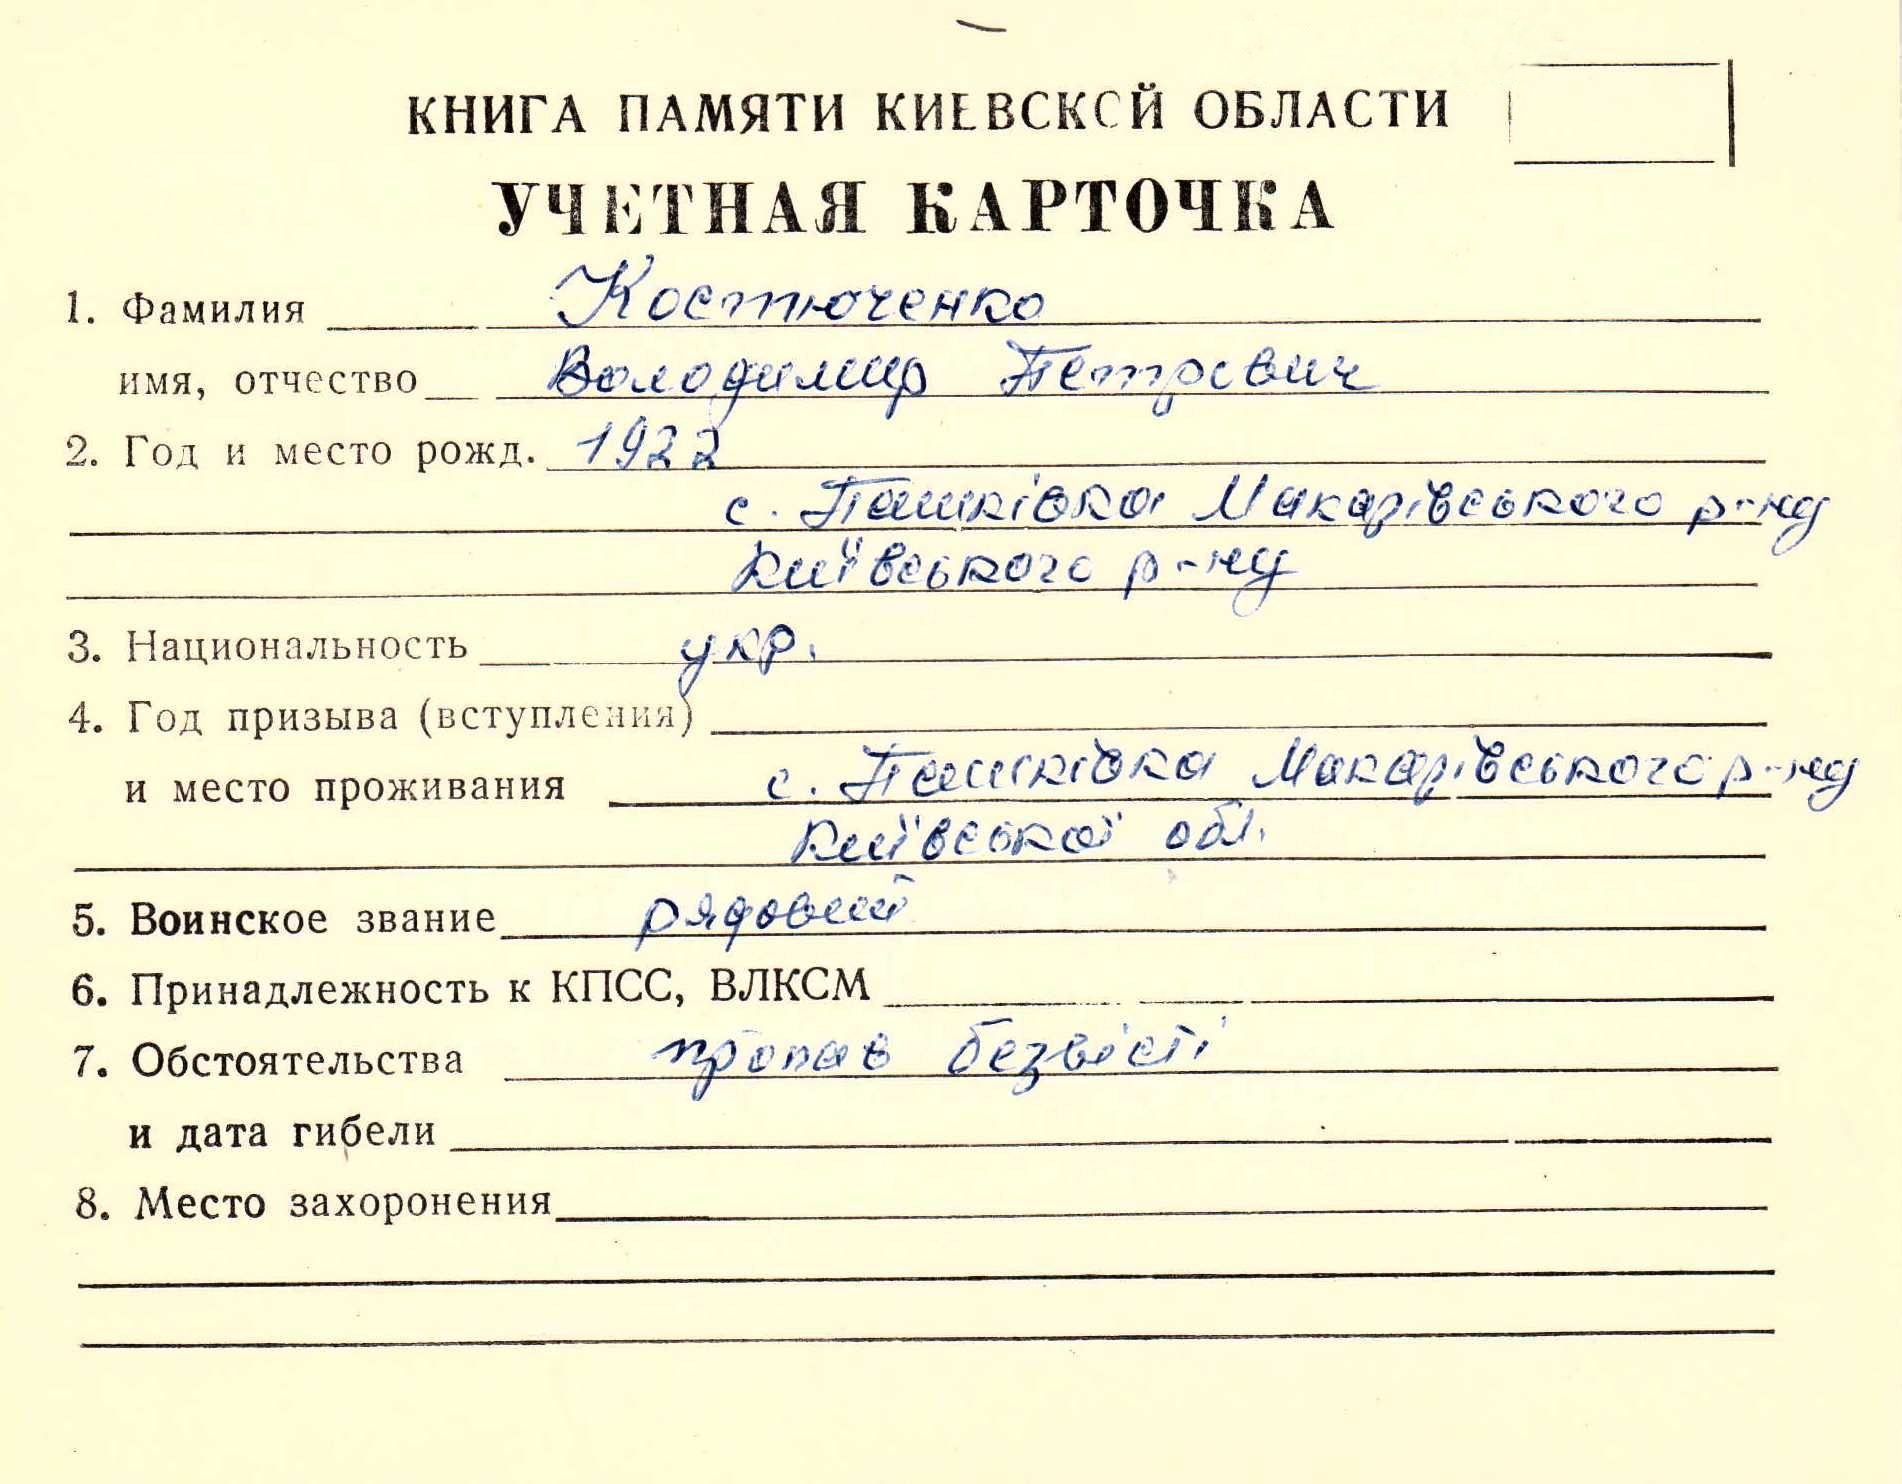 КНИГА ПАМЯТИ КИЕВСКОЙ ОБЛАСТИ
УЧЕТНАЯ КАРТОЧКА
1. Фамилия Костюченко
имя, отчество Володимир Петрович
2. Год и место рожд. 1922
с. Пашківка Макарівського р-ну
Київського р-ну
3. Национальность укр.
4. Год призыва (вступления)
и место проживания с. Пашківка Макарівського р-ну
Київської обл.
5. Воинское звание рядовий
6. Принадлежность к КПСС, ВЛКСМ
7. Обстоятельства пропав безвісті
и дата гибели
8. Место захоронения